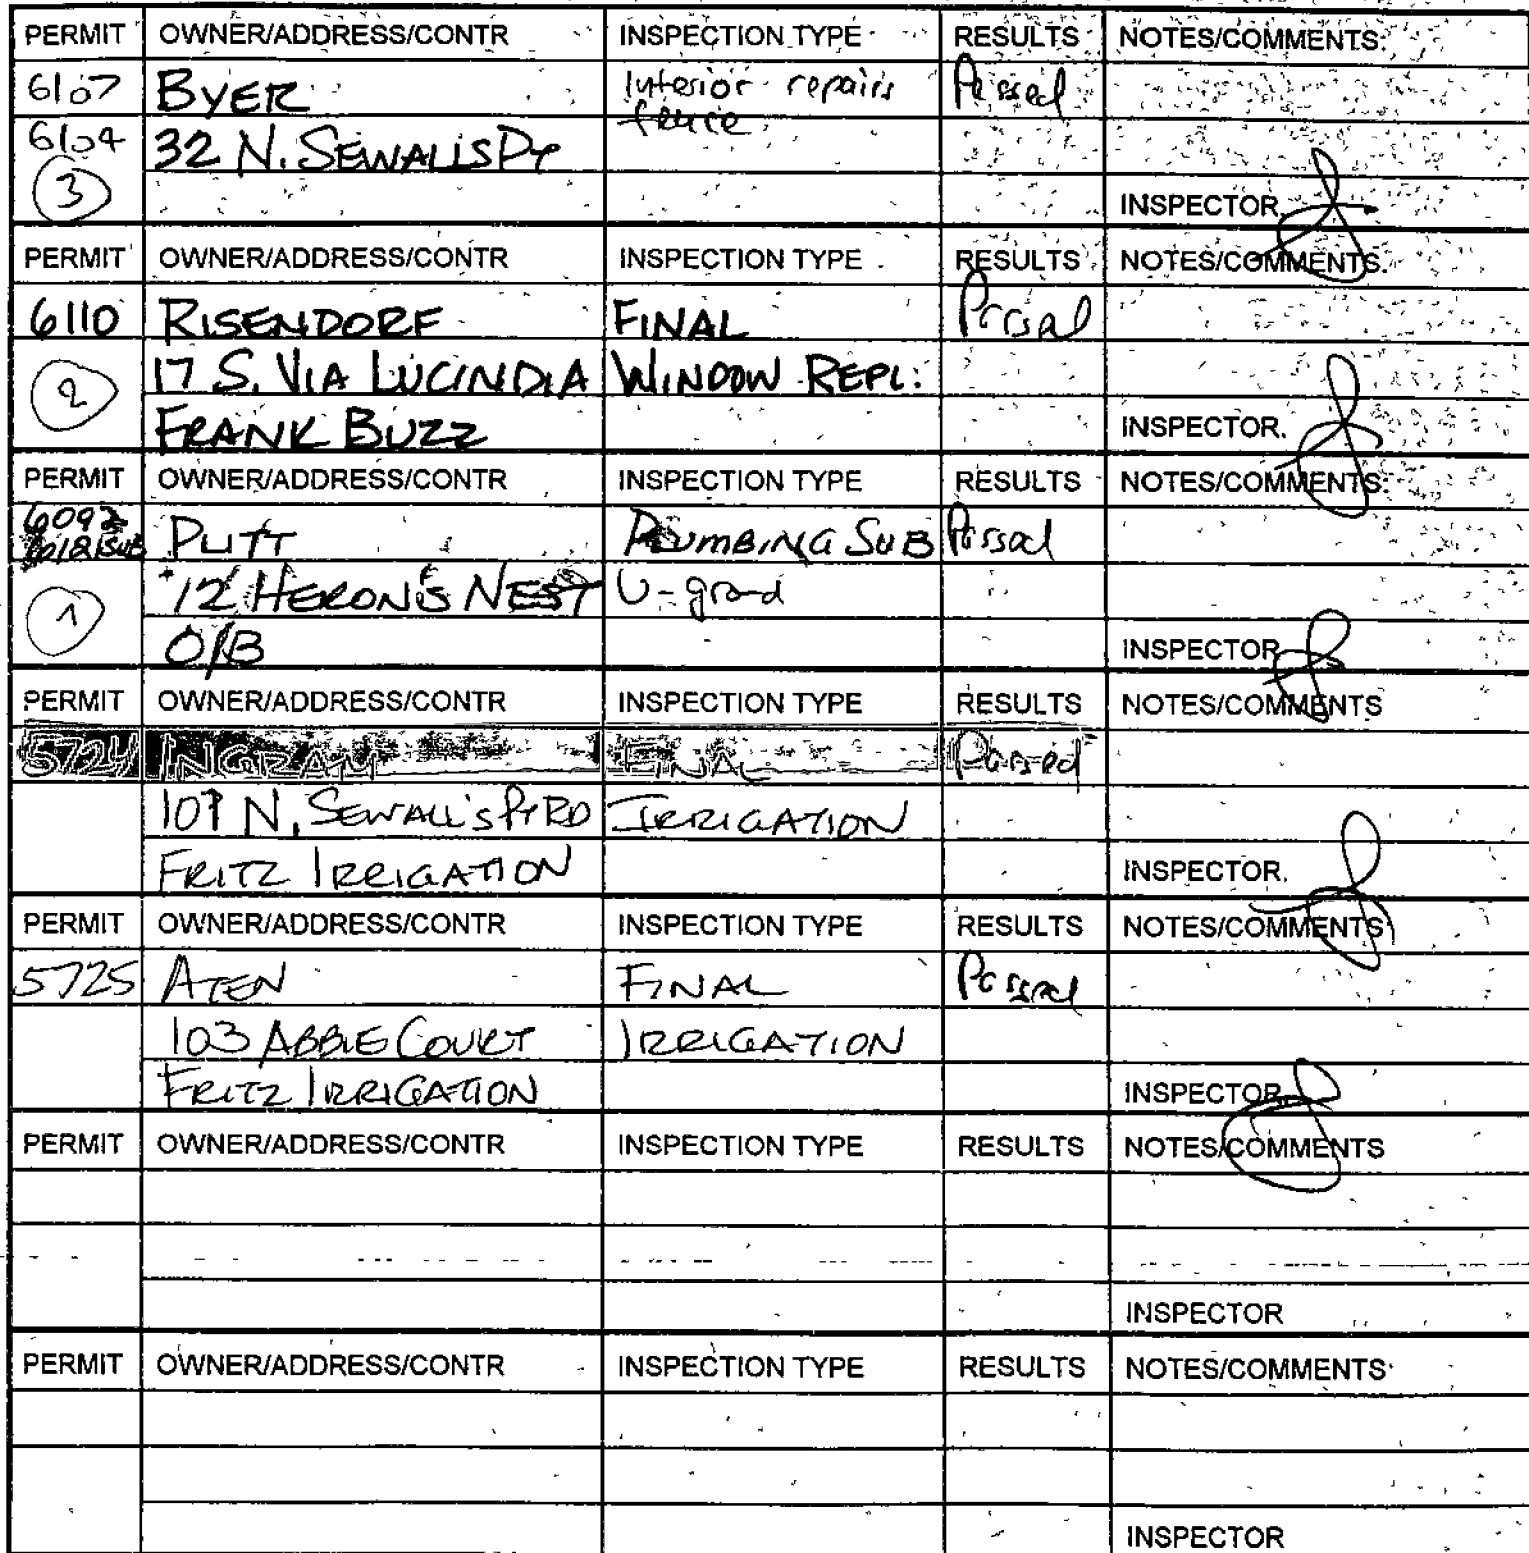 PERMIT OWNER/ADDRESS/CONTR INSPECTION TYPE RESULTS NOTES/COMMENTS:
6107 BYER Interior repairs Passed
6104 32 N. SEWALLS PT fence
3 INSPECTOR
PERMIT OWNER/ADDRESS/CONTR INSPECTION TYPE RESULTS NOTES/COMMENTS:
6110 RISENDORF FINAL Passed
2 17 S. VIA LUCINDIA WINDOW REPL.
FRANK BUZZ INSPECTOR
PERMIT OWNER/ADDRESS/CONTR INSPECTION TYPE RESULTS NOTES/COMMENTS:
6092 PUTT PLUMBING SUB Passed
1 12 HERON'S NEST U-grand
O/B INSPECTOR
PERMIT OWNER/ADDRESS/CONTR INSPECTION TYPE RESULTS NOTES/COMMENTS
5724 INGRAM FINAL Passed
107 N. SEWALL'S PT RD IRRIGATION
FRITZ IRRIGATION INSPECTOR
PERMIT OWNER/ADDRESS/CONTR INSPECTION TYPE RESULTS NOTES/COMMENTS
5725 ATEN FINAL Passed
103 ABBIE COURT IRRIGATION
FRITZ IRRIGATION INSPECTOR
PERMIT OWNER/ADDRESS/CONTR INSPECTION TYPE RESULTS NOTES/COMMENTS
INSPECTOR
PERMIT OWNER/ADDRESS/CONTR INSPECTION TYPE RESULTS NOTES/COMMENTS
INSPECTOR